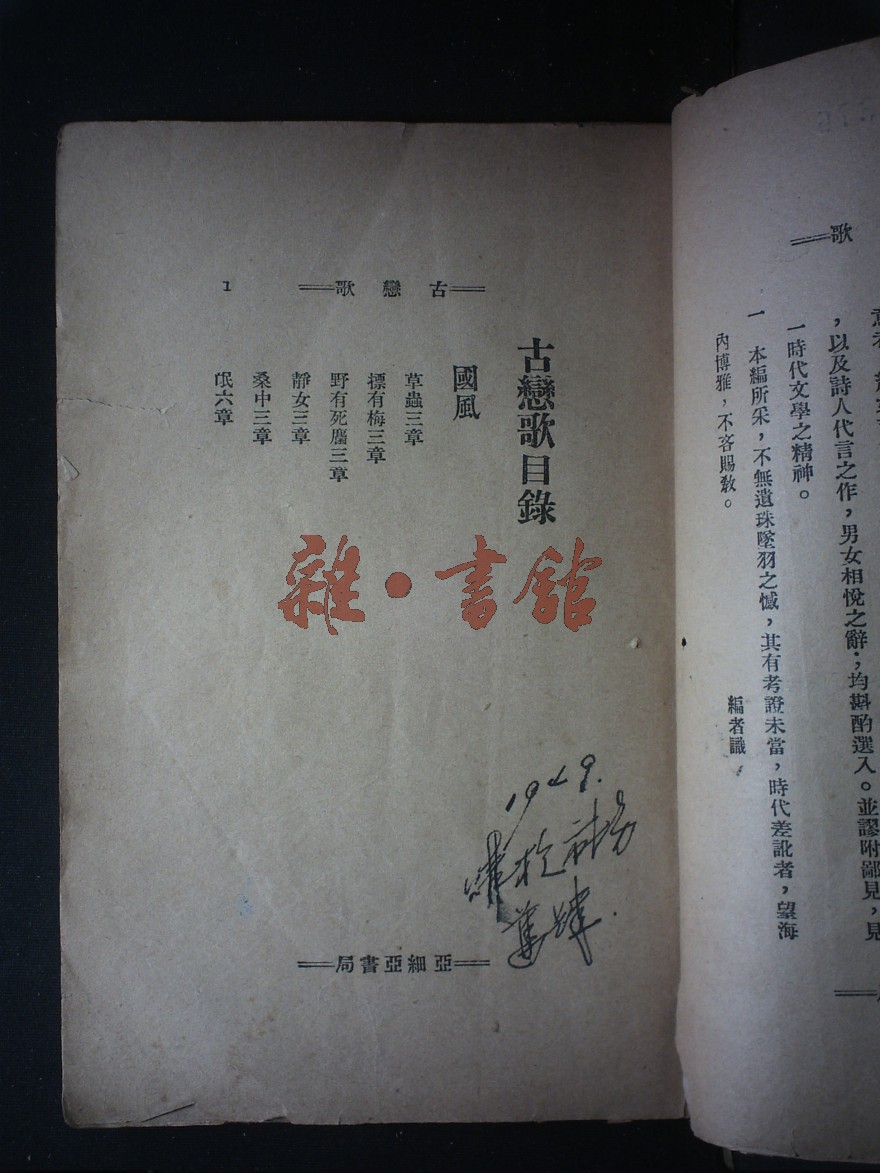 歌
，以及詩人代言之作，男女相悅之辭；均斟酌選入。並謬附鄙見，見
一時代文學之精神。
一 本編所采，不無遺珠墜羽之憾，其有考證未當，時代差訛者，望海
內博雅，不吝賜教。
編者識
古戀歌
1
古戀歌目錄
國風
草蟲三章
摽有梅三章
野有死麕三章
靜女三章
桑中三章
氓六章
雜·書館
1949.
亞細亞書局